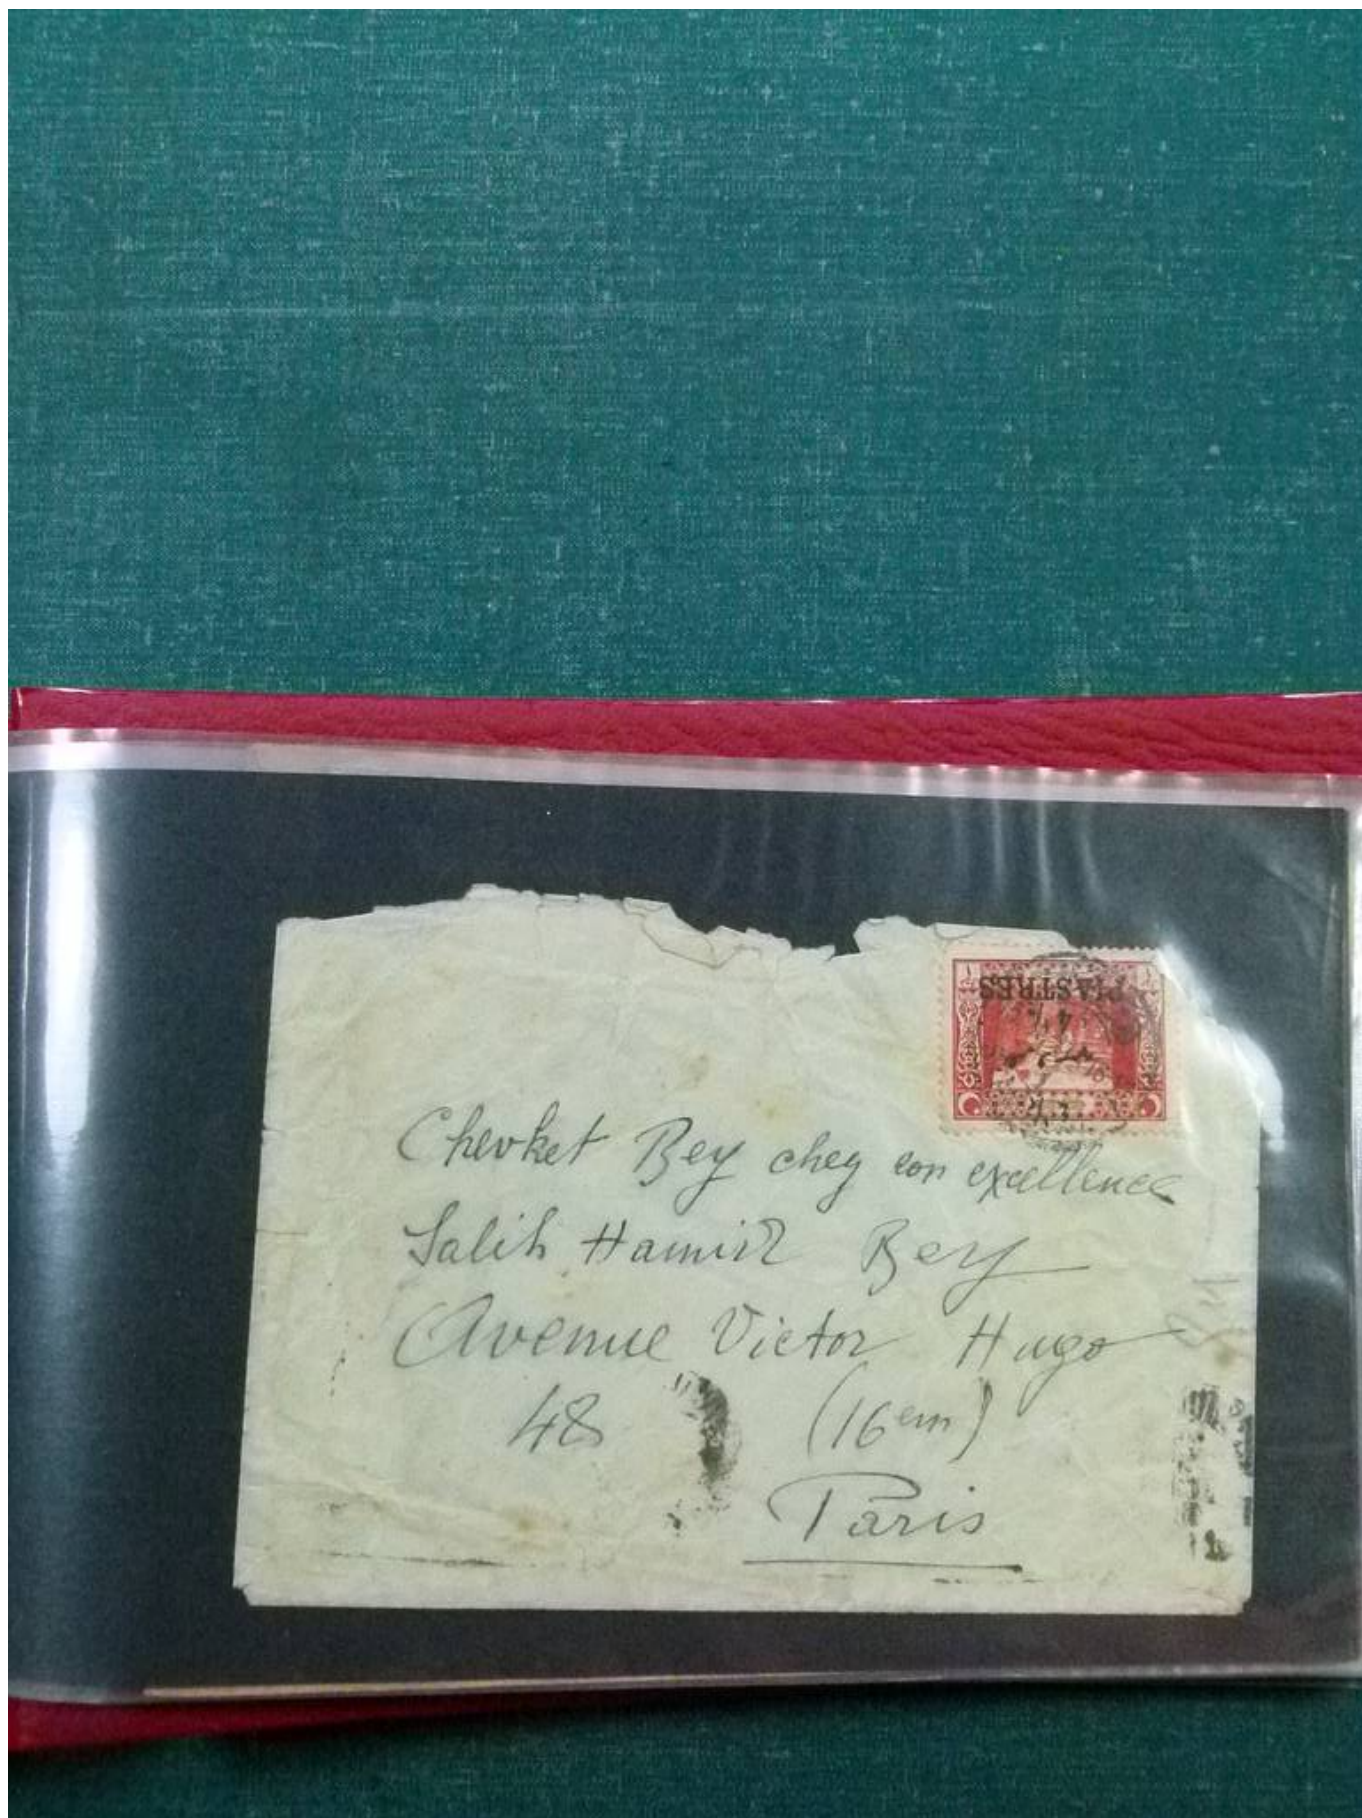 PIASTRES
4 ½
Chevket Bey chez son excellence
Salih Hamid Bey
Avenue Victor Hugo
48 (16em)
Paris